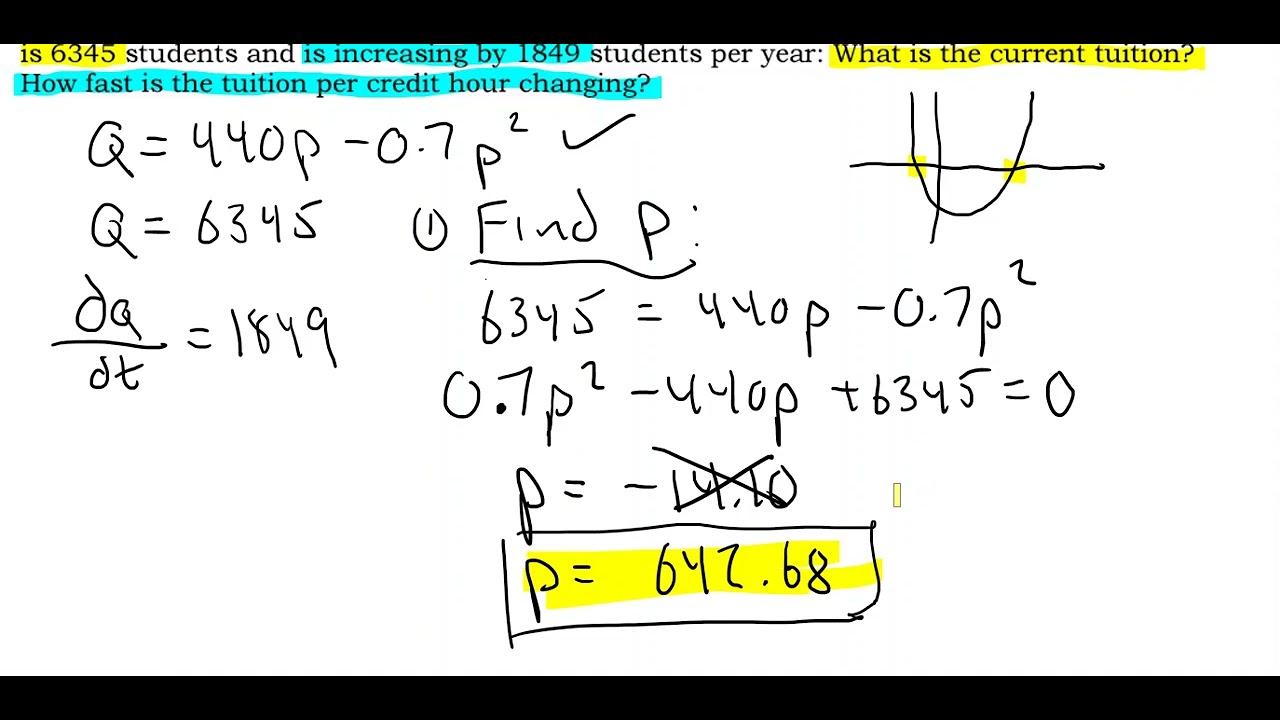 is 6345 students and is increasing by 1849 students per year: What is the current tuition?
How fast is the tuition per credit hour changing?
Q = 440p - 0.7p² ✓
Q = 6345
① Find p:
dQ/dt = 1849
6345 = 440p - 0.7p²
0.7p² - 440p + 6345 = 0
p = -14.10
p = 642.68